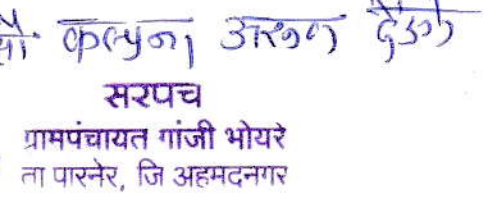 सौ कल्पना अरुण
सरपच
ग्रामपंचायत गांजी भोयरे
ता पारनेर, जि अहमदनगर